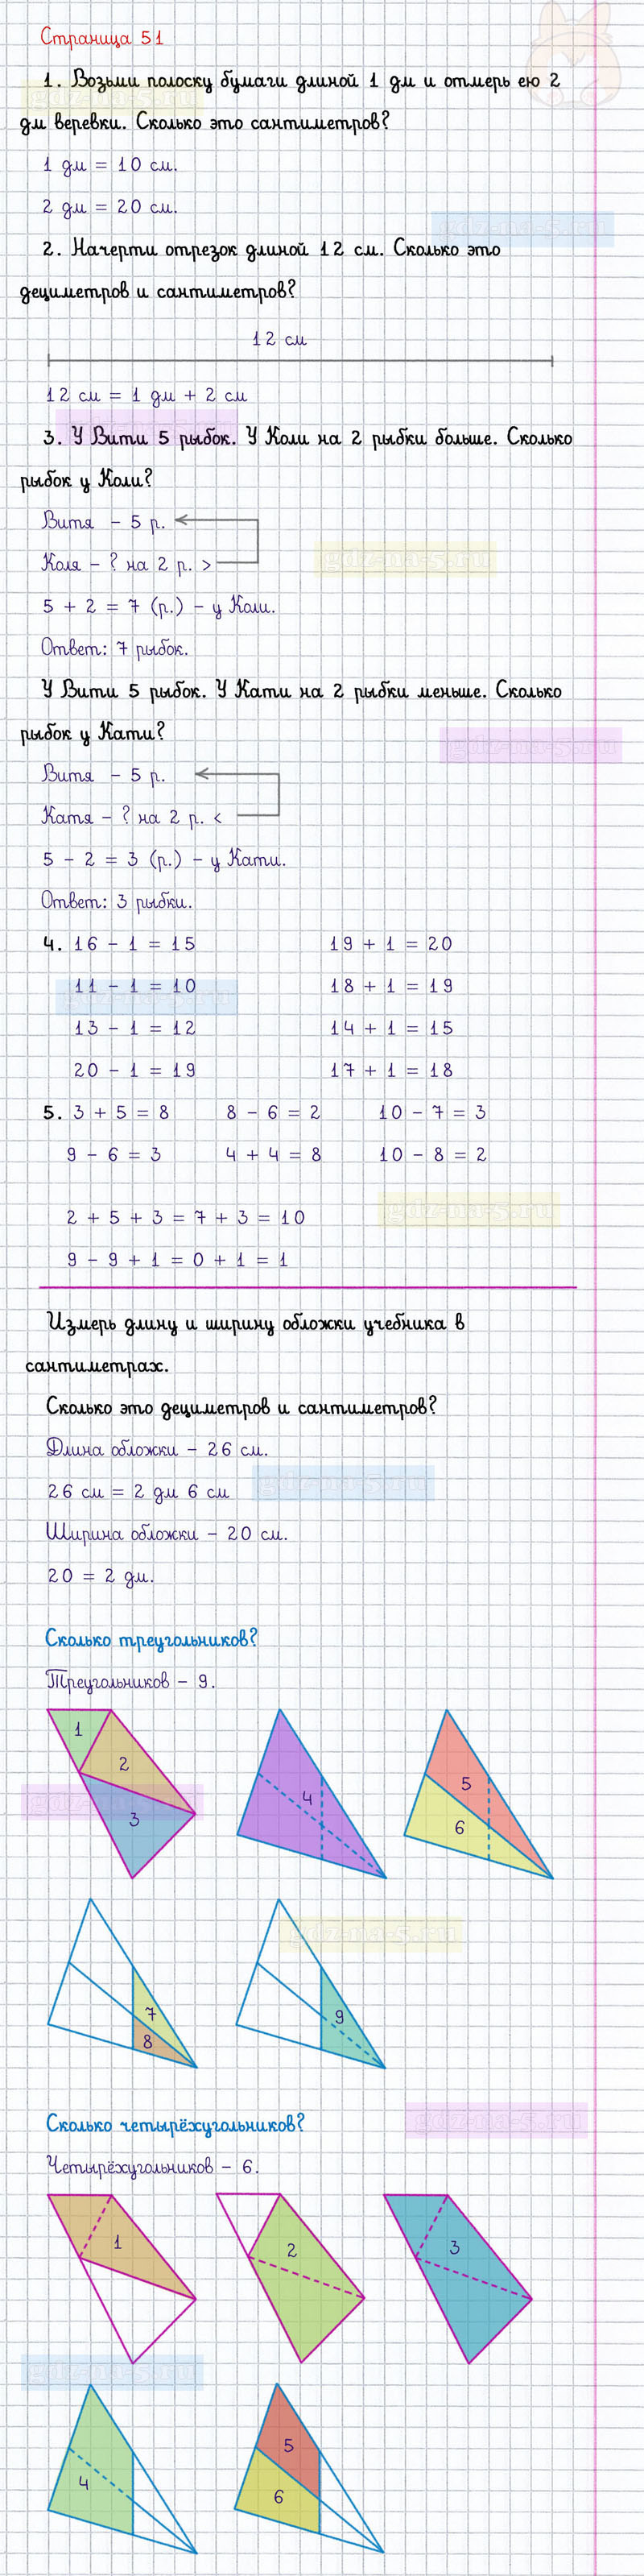 Страница 51
1. Возьми полоску бумаги длиной 1 дм и отмерь ею 2
дм веревки. Сколько это сантиметров?
1 дм = 10 см.
2 дм = 20 см.
gdz-na-5.ru
2. Начерти отрезок длиной 12 см. Сколько это
дециметров и сантиметров?
12 см
12 см = 1 дм + 2 см
3. У Вити 5 рыбок. У Коли на 2 рыбки больше. Сколько
рыбок у Коли?
Витя - 5 р.
Коля - ? на 2 р. >
gdz-na-5.ru
5 + 2 = 7 (р.) - у Коли.
Ответ: 7 рыбок.
У Вити 5 рыбок. У Кати на 2 рыбки меньше. Сколько
рыбок у Кати?
gdz-na-5.ru
Витя - 5 р.
Катя - ? на 2 р. <
5 - 2 = 3 (р.) - у Кати.
Ответ: 3 рыбки.
4. 16 - 1 = 15 19 + 1 = 20
11 - 1 = 10 18 + 1 = 19
13 - 1 = 12 14 + 1 = 15
20 - 1 = 19 17 + 1 = 18
5. 3 + 5 = 8 8 - 6 = 2 10 - 7 = 3
9 - 6 = 3 4 + 4 = 8 10 - 8 = 2
2 + 5 + 3 = 7 + 3 = 10
gdz-na-5.ru
9 - 9 + 1 = 0 + 1 = 1
Измерь длину и ширину обложки учебника в
сантиметрах.
Сколько это дециметров и сантиметров?
Длина обложки - 26 см.
26 см = 2 дм 6 см
gdz-na-5.ru
Ширина обложки - 20 см.
20 = 2 дм.
Сколько треугольников?
Треугольников - 9.
1
2
3
4
5
6
gdz-na-5.ru
7
8
9
Сколько четырёхугольников?
gdz-na-5.ru
Четырёхугольников - 6.
1
2
3
gdz-na-5.ru
4
5
6